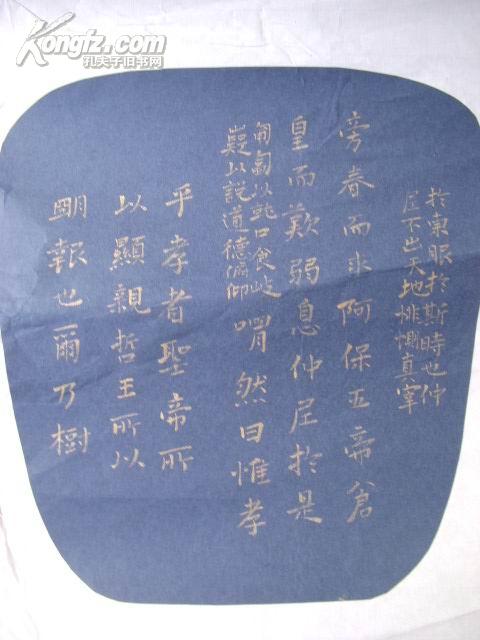 Kongfz.com
孔夫子旧书网
於東眼於斯時也仲
尼不出天地慟真宰
旁春而求阿保五帝倉
皇而歎弱息仲尼於是
匍匐以就口食岐
嶷以説道德仰
喟然曰惟孝
乎孝者聖帝所
以顯親哲王所以
明報也爾乃樹